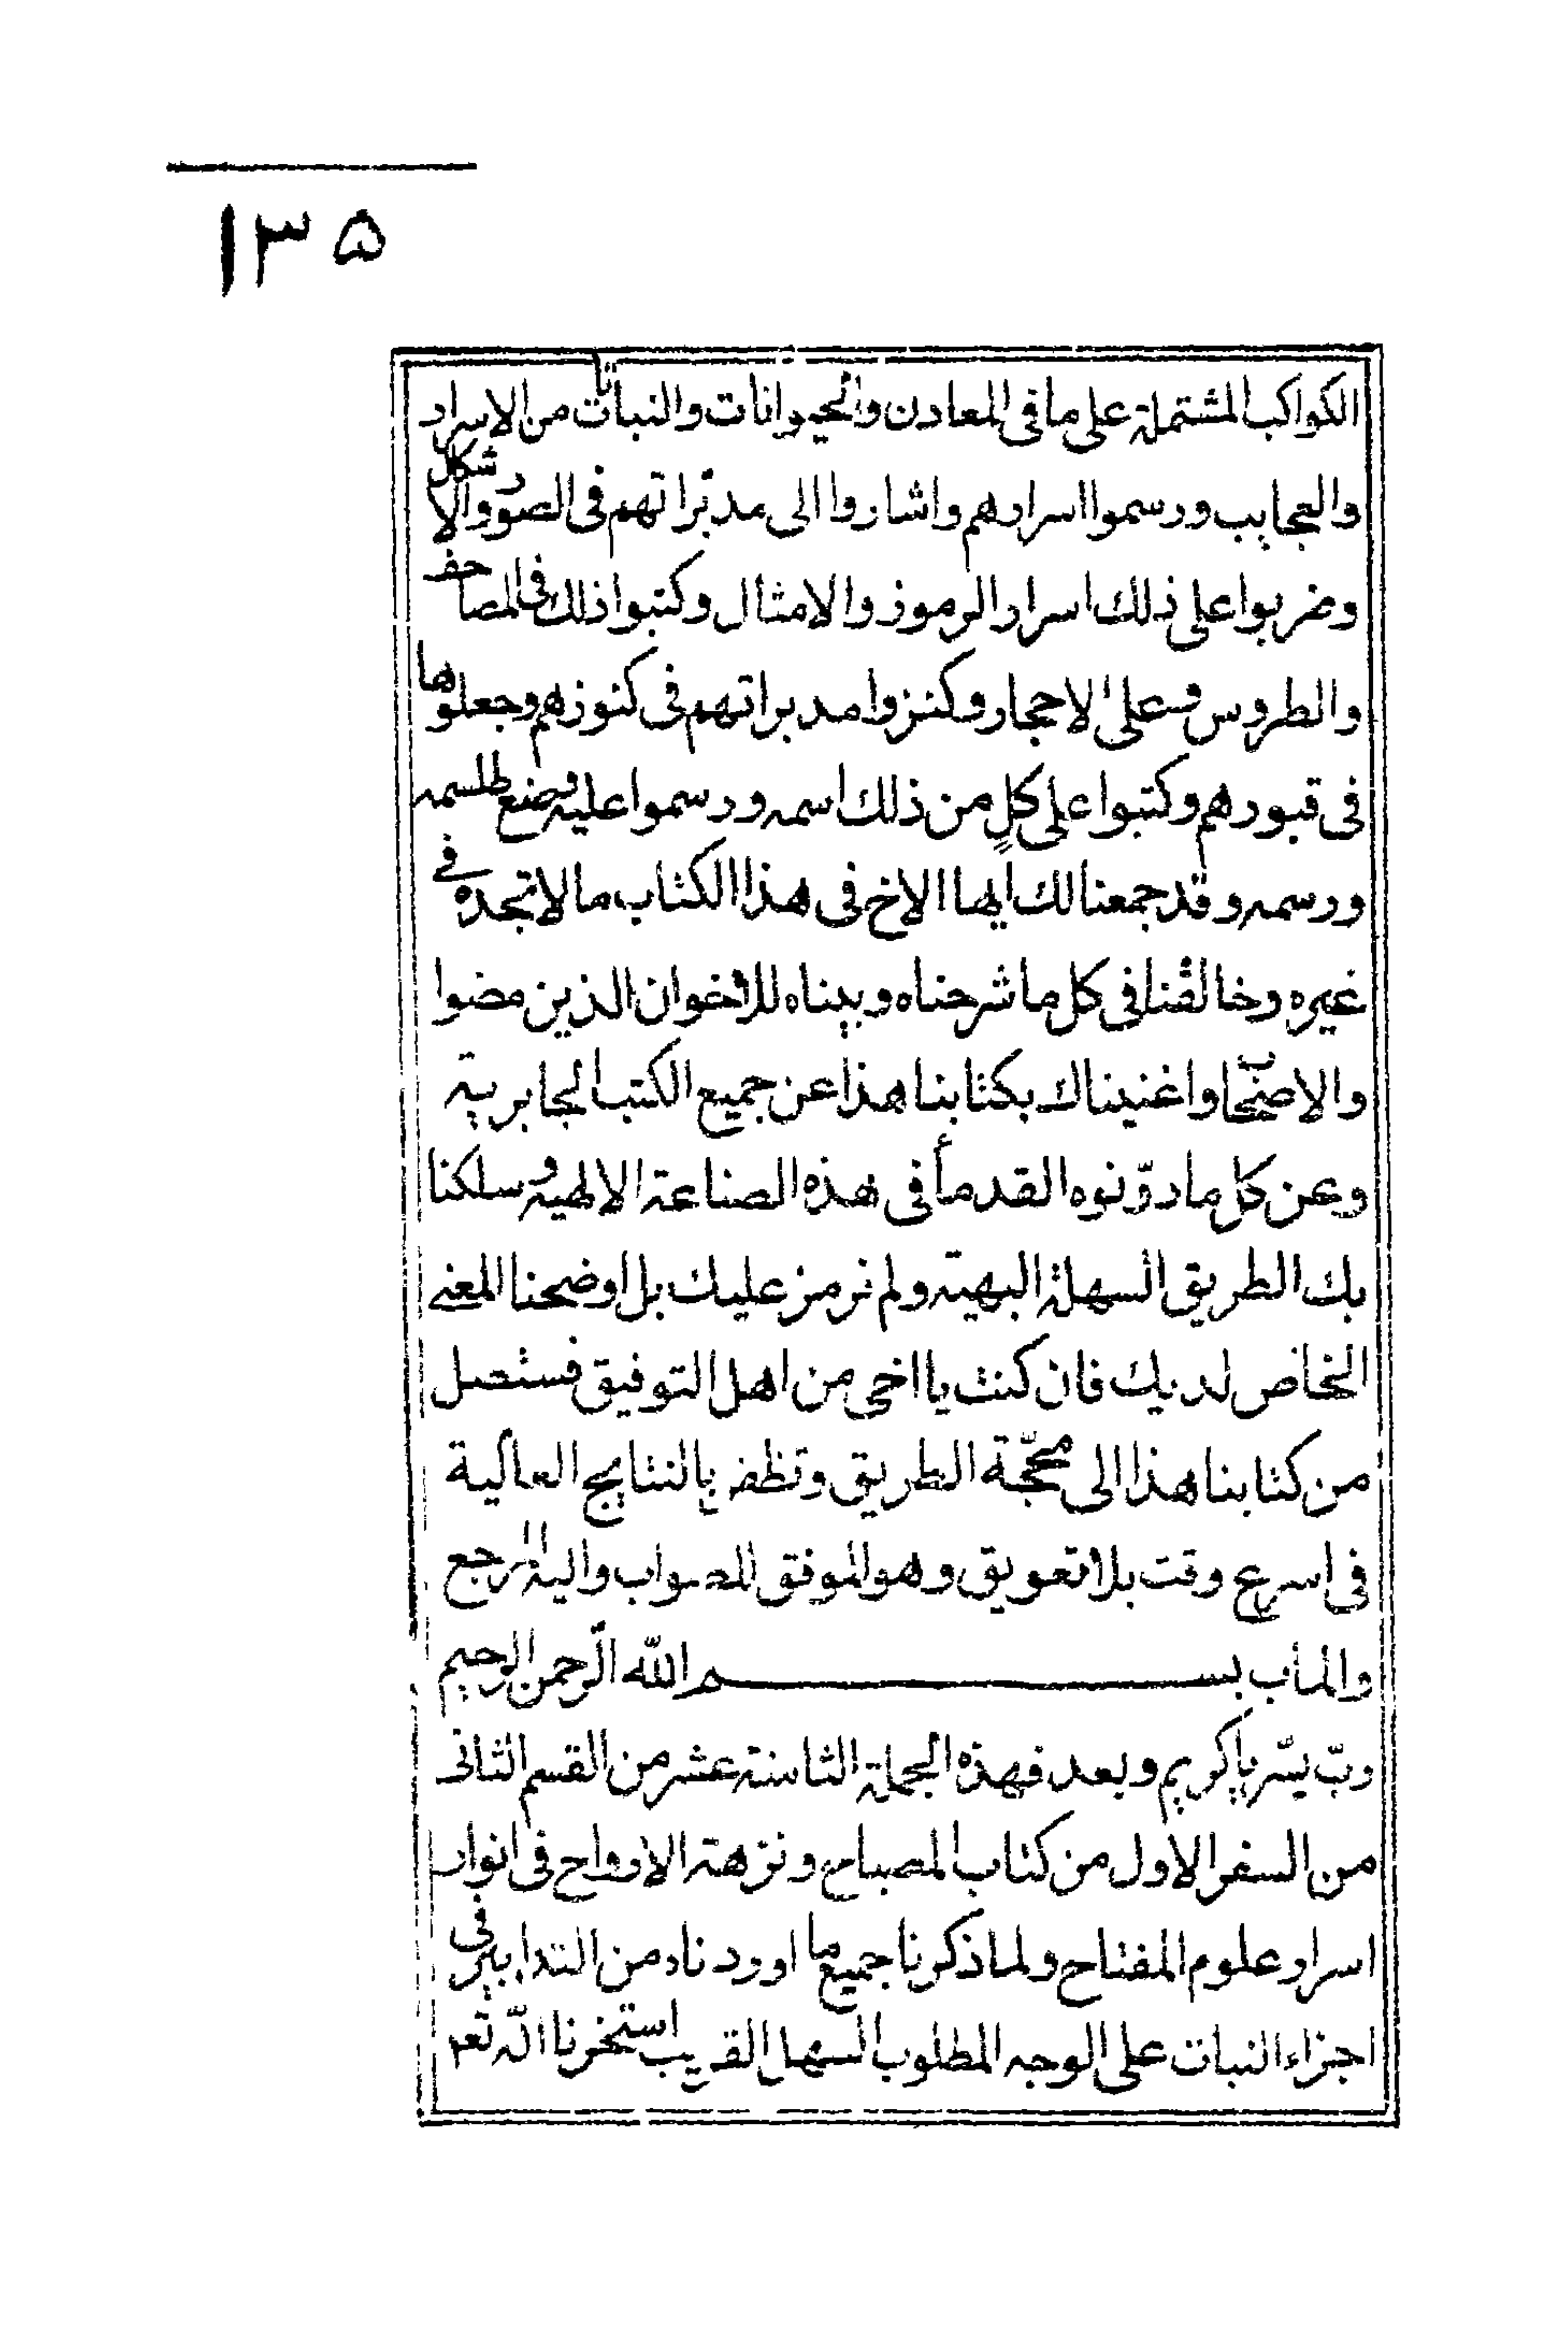 ١٣٥
الكواكب المشتملة على ما فى المعادن والحيوانات والنباتات من الاسرار
والعجايب ورسموا اسرارهم واشاروا الى مدبّراتهم فى الصوَر والاشكال
وضربوا على ذلك اسرار الرموز والامثال وكتبوا ذلك فى المصاحف
والطروس وعلى الاحجار وكنزوا مدبراتهم فى كنوزهم وجعلوها
فى قبورهم وكتبوا على كلٍ من ذلك اسمه ورسموا عليه وضع طلسمه
ورسمه وقد جمعنا لك ايها الاخ فى هذا الكتاب ما لا تجده فى
غيره وخالفنا فى كل ما شرحناه وبيناه للاخوان الذين مضوا
والاصحاب واغنيناك بكتابنا هذا عن جميع الكتب الجابرية
وعن كل ما دوّنوه القدمأ فى هذه الصناعة الالهية وسلكنا
بك الطريق السهلة البهية ولم نرمز عليك بل اوضحنا المعنى
الخاص لديك فان كنت يا اخى من اهل التوفيق فستصل
من كتابنا هذا الى محجّة الطريق وتظفر بالنتايج العالية
فى اسرع وقت بلا تعويق وهو الموفق للصواب واليه المرجع
والمأب بسم الله الرّحمن الرحيم
ربّ يسّر يا كريم وبعد فهذه الجملة الثامنة عشر من القسم الثانى
من السفر الاول من كتاب المصباح ونزهة الارواح فى انوار
اسرار علوم المفتاح ولما ذكرنا جميع ما اوردناه من التدابير فى
اجزاء النبات على الوجه المطلوب السهل القريب استخرنا الله تعم